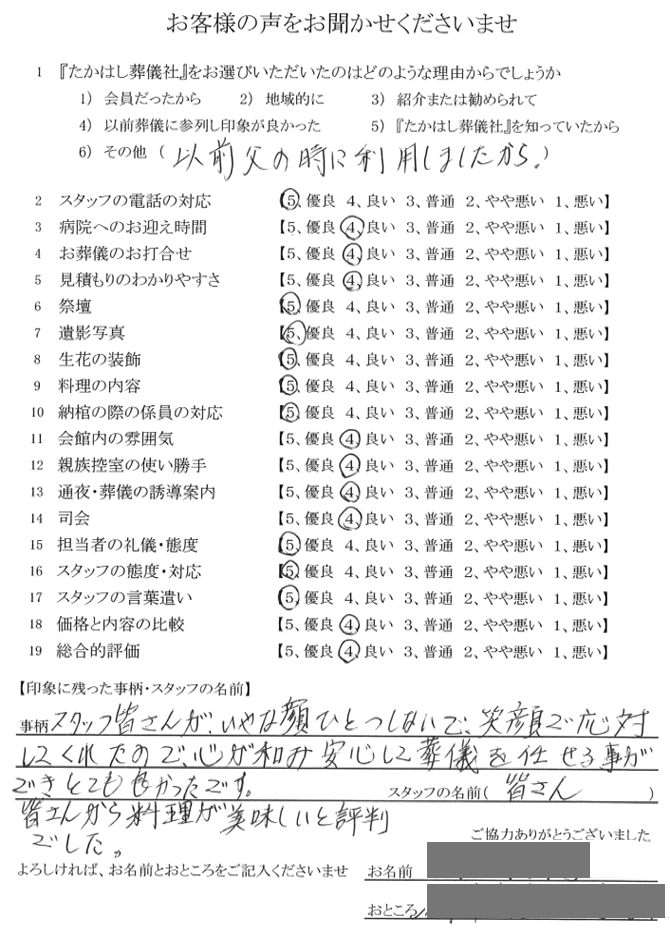 お客様の声をお聞かせくださいませ
1 『たかはし葬儀社』をお選びいただいたのはどのような理由からでしょうか
1） 会員だったから 2） 地域的に 3） 紹介または勧められて
4） 以前葬儀に参列し印象が良かった 5） 『たかはし葬儀社』を知っていたから
6） その他 （ 以前父の時に利用しましたから。）
2 スタッフの電話の対応 【5、優良 4、良い 3、普通 2、やや悪い 1、悪い】
3 病院へのお迎え時間 【5、優良 4、良い 3、普通 2、やや悪い 1、悪い】
4 お葬儀のお打合せ 【5、優良 4、良い 3、普通 2、やや悪い 1、悪い】
5 見積もりのわかりやすさ 【5、優良 4、良い 3、普通 2、やや悪い 1、悪い】
6 祭壇 【5、優良 4、良い 3、普通 2、やや悪い 1、悪い】
7 遺影写真 【5、優良 4、良い 3、普通 2、やや悪い 1、悪い】
8 生花の装飾 【5、優良 4、良い 3、普通 2、やや悪い 1、悪い】
9 料理の内容 【5、優良 4、良い 3、普通 2、やや悪い 1、悪い】
10 納棺の際の係員の対応 【5、優良 4、良い 3、普通 2、やや悪い 1、悪い】
11 会館内の雰囲気 【5、優良 4、良い 3、普通 2、やや悪い 1、悪い】
12 親族控室の使い勝手 【5、優良 4、良い 3、普通 2、やや悪い 1、悪い】
13 通夜・葬儀の誘導案内 【5、優良 4、良い 3、普通 2、やや悪い 1、悪い】
14 司会 【5、優良 4、良い 3、普通 2、やや悪い 1、悪い】
15 担当者の礼儀・態度 【5、優良 4、良い 3、普通 2、やや悪い 1、悪い】
16 スタッフの態度・対応 【5、優良 4、良い 3、普通 2、やや悪い 1、悪い】
17 スタッフの言葉遣い 【5、優良 4、良い 3、普通 2、やや悪い 1、悪い】
18 価格と内容の比較 【5、優良 4、良い 3、普通 2、やや悪い 1、悪い】
19 総合的評価 【5、優良 4、良い 3、普通 2、やや悪い 1、悪い】
【印象に残った事柄・スタッフの名前】
事柄 スタッフ皆さんが、いやな顔ひとつしないで、笑顔で応対
してくれたので、心が和み安心して葬儀を任せる事が
できとても良かったです。 スタッフの名前（ 皆さん ）
皆さんから料理が美味しいと評判
でした。
ご協力ありがとうございました
よろしければ、お名前とおところをご記入くださいませ お名前
おところ